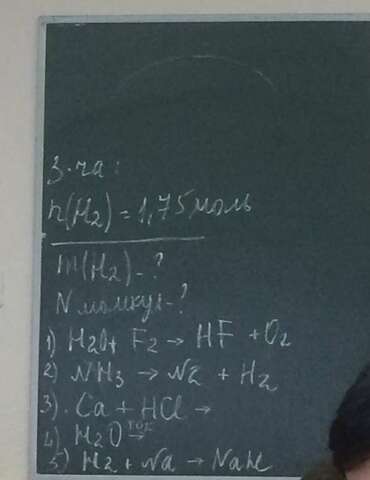 З-ча:
n(H2) = 1,75 моль
m(H2) - ?
N молкул - ?
1) H2O + F2 → HF + O2
2) NH3 → N2 + H2
3) Ca + HCl →
4) H2O ток →
5) H2 + Na → NaH